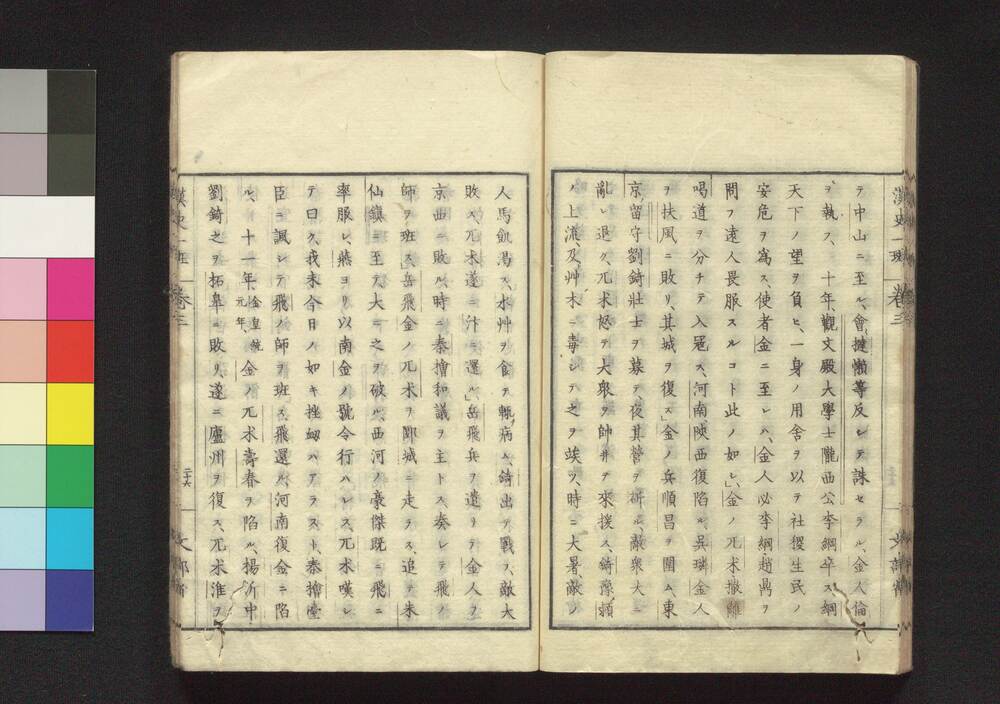 漢史一班
卷三
テ中山ニ至ル、會撻懶等反シテ誅セラル、金人倫
ヲ執フ、十年、觀文殿大學士隴西公李綱卒ス、綱
天下ノ望ヲ負ヒ、一身ノ用舍ヲ以テ社稷生民ノ
安危ヲ爲ス、使者金ニ至レハ、金人必李綱趙鼎ヲ
問フ、遠人畏服スルコト此ノ如シ」金ノ兀朮撒離
喝道ヲ分チテ入冦ス、河南陝西復陷ル、吳璘金人
ヲ扶風ニ敗リ、其城ヲ復ス」金ノ兵順昌ヲ圍ム、東
京留守劉錡壯士ヲ募テ、夜其營ヲ斫ル、敵衆大ニ
亂レ退ク、兀朮怒テ大衆ヲ帥井テ來援ス、錡豫頴
ノ上流、及艸木ニ毒シテ之ヲ竢ツ、時ニ大暑、敵ノ
人馬飢渴ス、水艸ヲ食テ輙病ム、錡出テ戰ス、敵大
敗ス、兀朮遂ニ汴ニ還ル」岳飛兵ヲ遣リテ金人ヲ
京西ニ敗ル、時ニ秦檜和議ヲ主トス、奏シテ飛ノ
師ヲ班ス」岳飛金ノ兀朮ヲ郾城ニ走ラス、追テ朱
仙鎭ニ至テ、大ニ之ヲ破ル、西河ノ豪傑既ニ飛ニ
率服シ、燕ヨリ以南金ノ號令行ハレス、兀朮嘆シ
テ曰ク、我未今日ノ如キ挫衂ハアラスト、秦檜臺
臣ニ諷シテ飛ノ師ヲ班ス、飛還ル、河南復金ニ陷
ル、十一年、金皇統元年、金ノ兀朮壽春ヲ陷ル、楊沂中
劉錡之ヲ柘臯ニ敗リ、遂ニ廬州ヲ復ス、兀朮淮ヲ
漢史一班
卷三
二十六
文部省